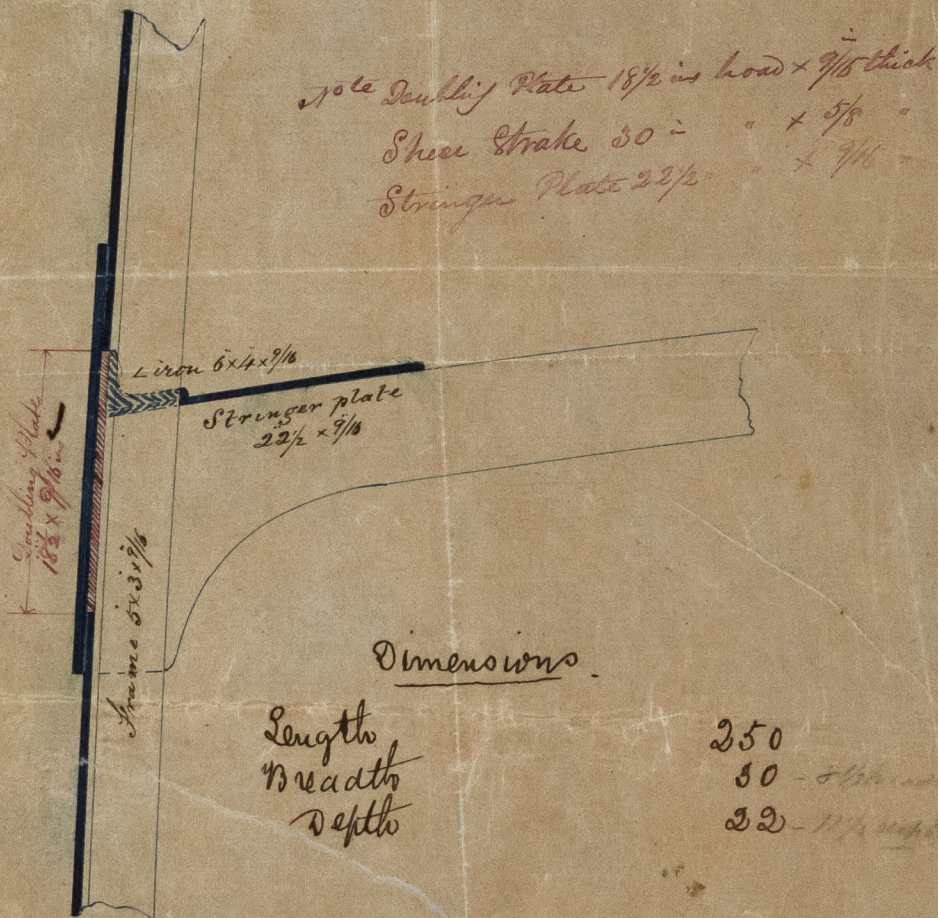 Note Doubling Plate 18 1/2 ins broad × 9/16 thick
Sheer Strake 30 in " × 5/8 "
Stringer Plate 22 1/2 " × 9/16 "
L iron 6 × 4 × 9/16
Stringer plate
22 1/2 × 9/16
Doubling Plate
18 1/2 × 9/16 in
Frame 5 × 3 × 7/16
Dimensions.
Length 250
Breadth 30
Depth 22